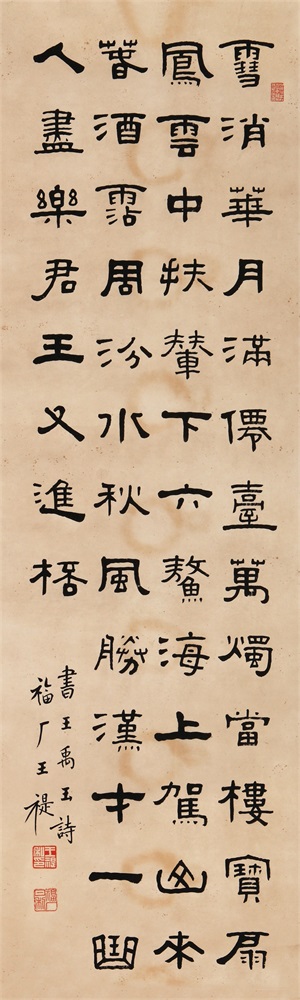 雪消華月滿僊臺萬燭當樓寶扇
鳳雲中扶輦下六鰲海上駕山來
萅酒霑周汾水秋風勝漢才一曲
人盡樂君王又進桮
書王禹玉詩
福厂王禔